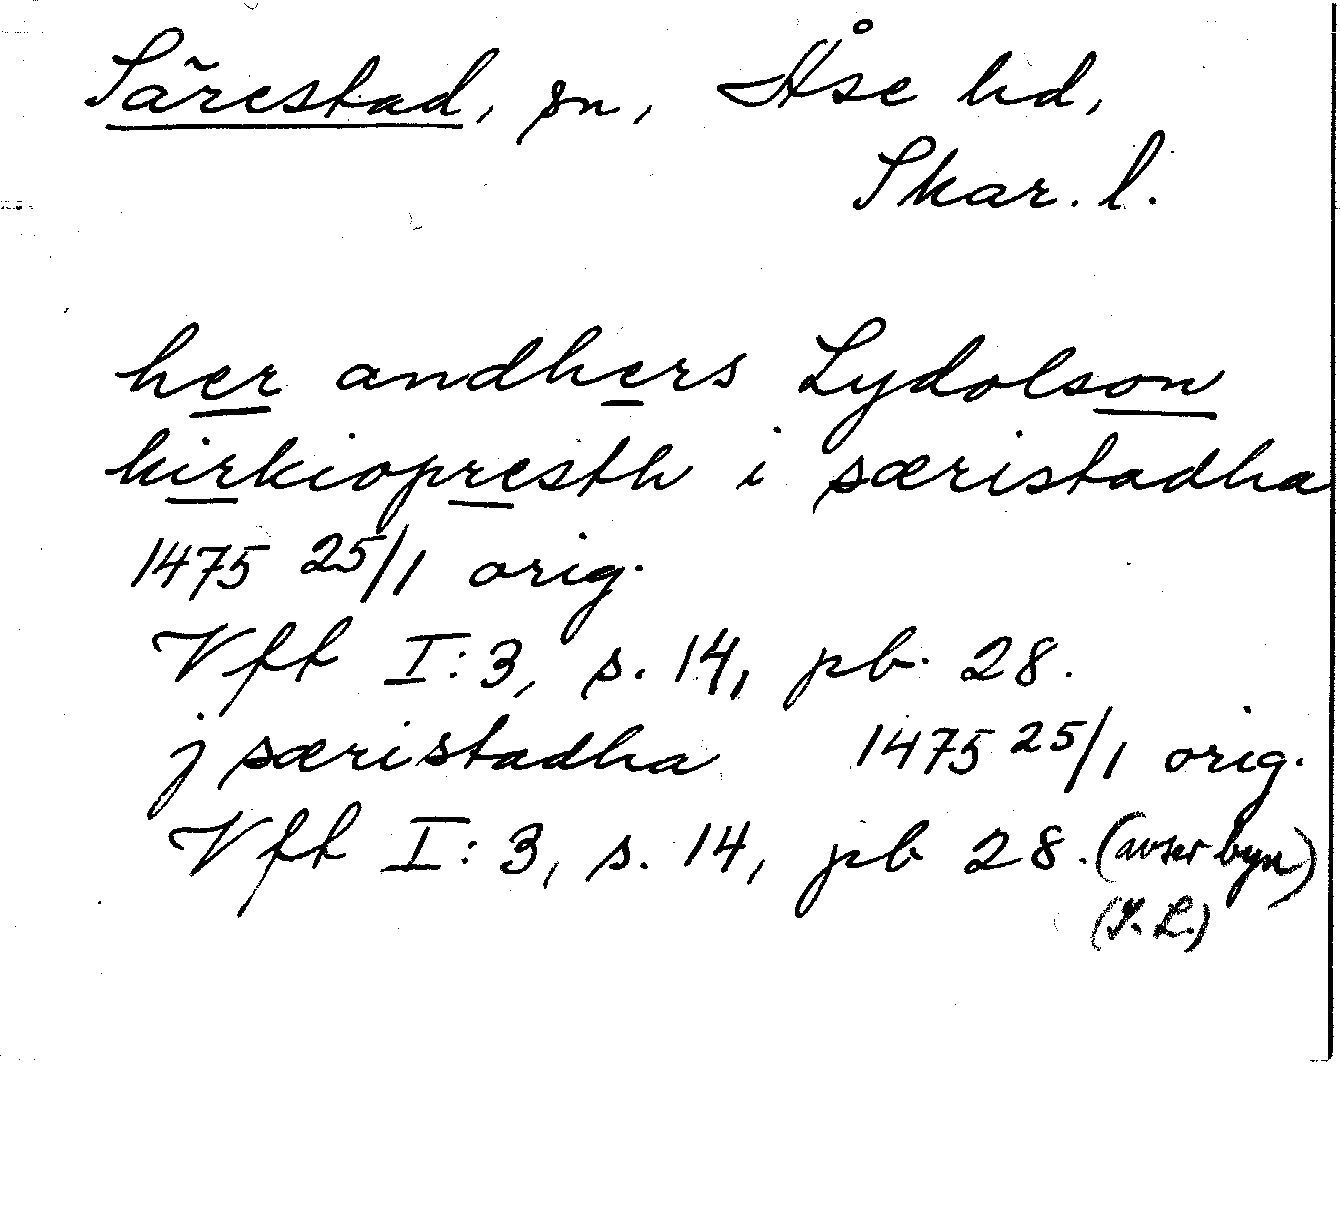 Särestad, sn, Åse hd,
Skar. l.
her andhers Lydolson
kirkiopresth i særistadha
1475 25/1 orig.
Vft I:3, s. 14, pb. 28.
j særistadha 1475 25/1 orig.
Vft I:3, s. 14, pb 28. (avser byn)